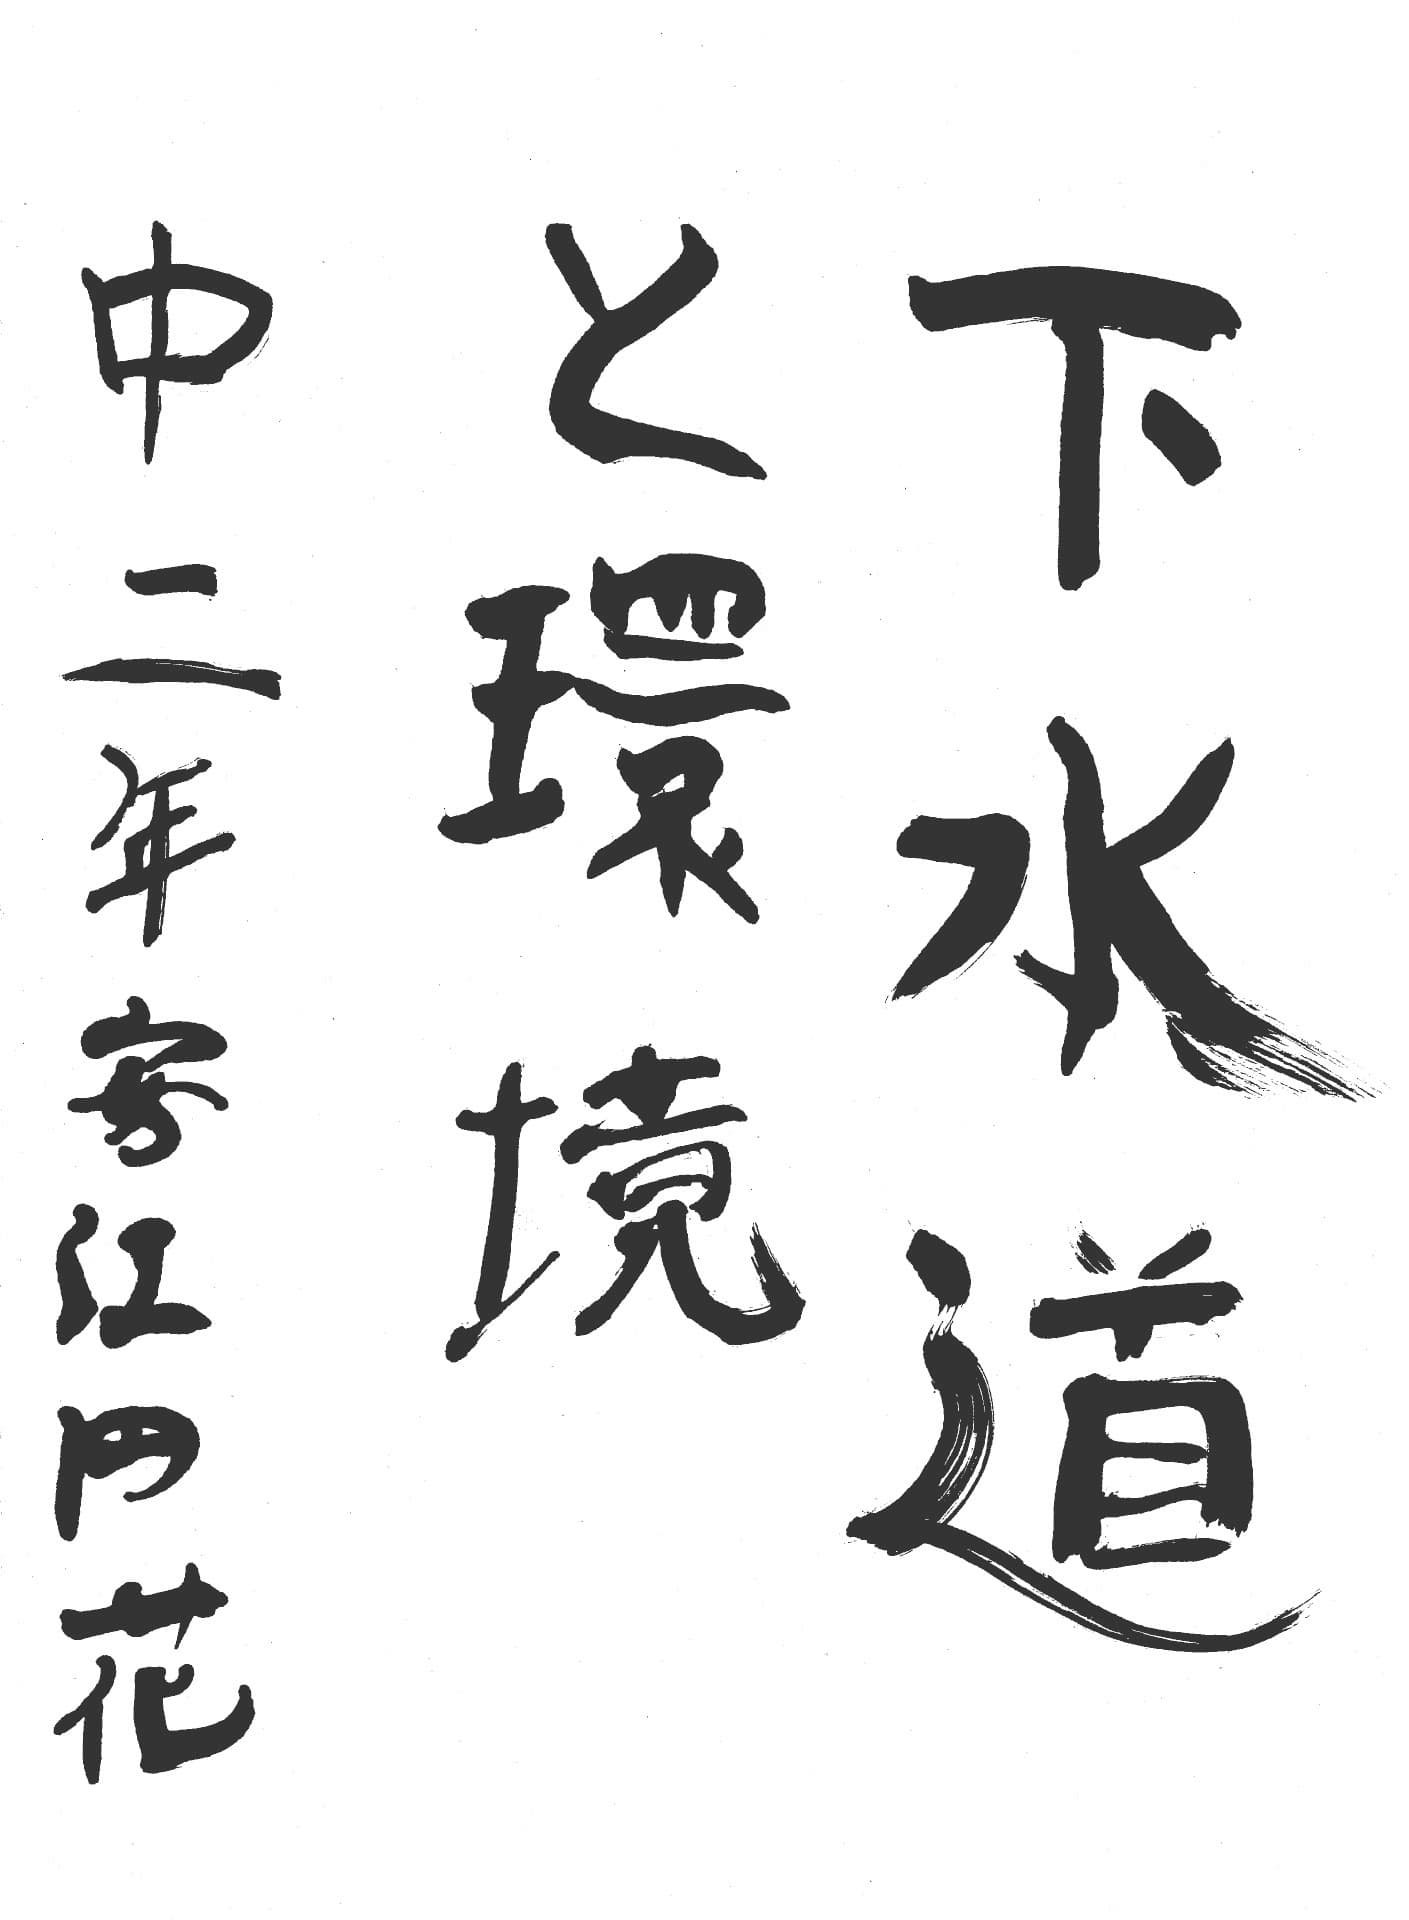 下水道
と環境
中二年安江円花